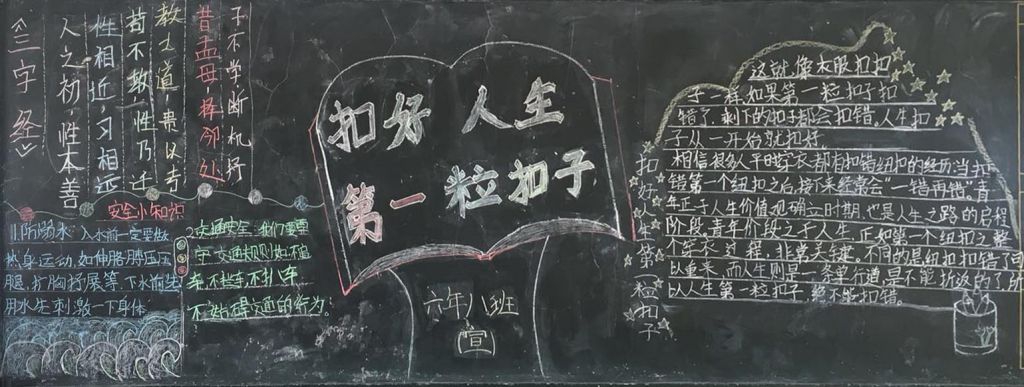 《三字经》
人之初,性本善
性相近,习相远
若不教,性乃迁
教之道,贵以专
昔孟母,择邻处
子不学,断机杼
安全小知识
1.防溺水:入水前一定要做
热身运动,如伸胳膊压压
腿,扩胸抒展等,下水前先
用水先刺激一下身体
2.交通安全:我们要遵
守交通规则如不骑
车不挂车不扒车
不妨碍交通的行为。
扣好人生
第一粒扣子
六年八班
(宣)
扣好人生第一粒扣子
这就像衣服扣扣
子一样,如果第一粒扣子扣
错了,剩下的扣子都会扣错。人生扣
子从一开始就扣好
相信很多人平时穿衣都有扣错纽扣的经历,当扣
错第一个纽扣之后,接下来经常会“一错再错”。青
年正于人生价值观确立时期,也是人生之路的启程
阶段,青年阶段之于人生,正如第一个纽扣之整
个穿衣过程,非常关键,不同的是纽扣扣错了可
以重来,而人生则是一条单行道是不能折返的了,所
以人生第一粒扣子,绝不能扣错。